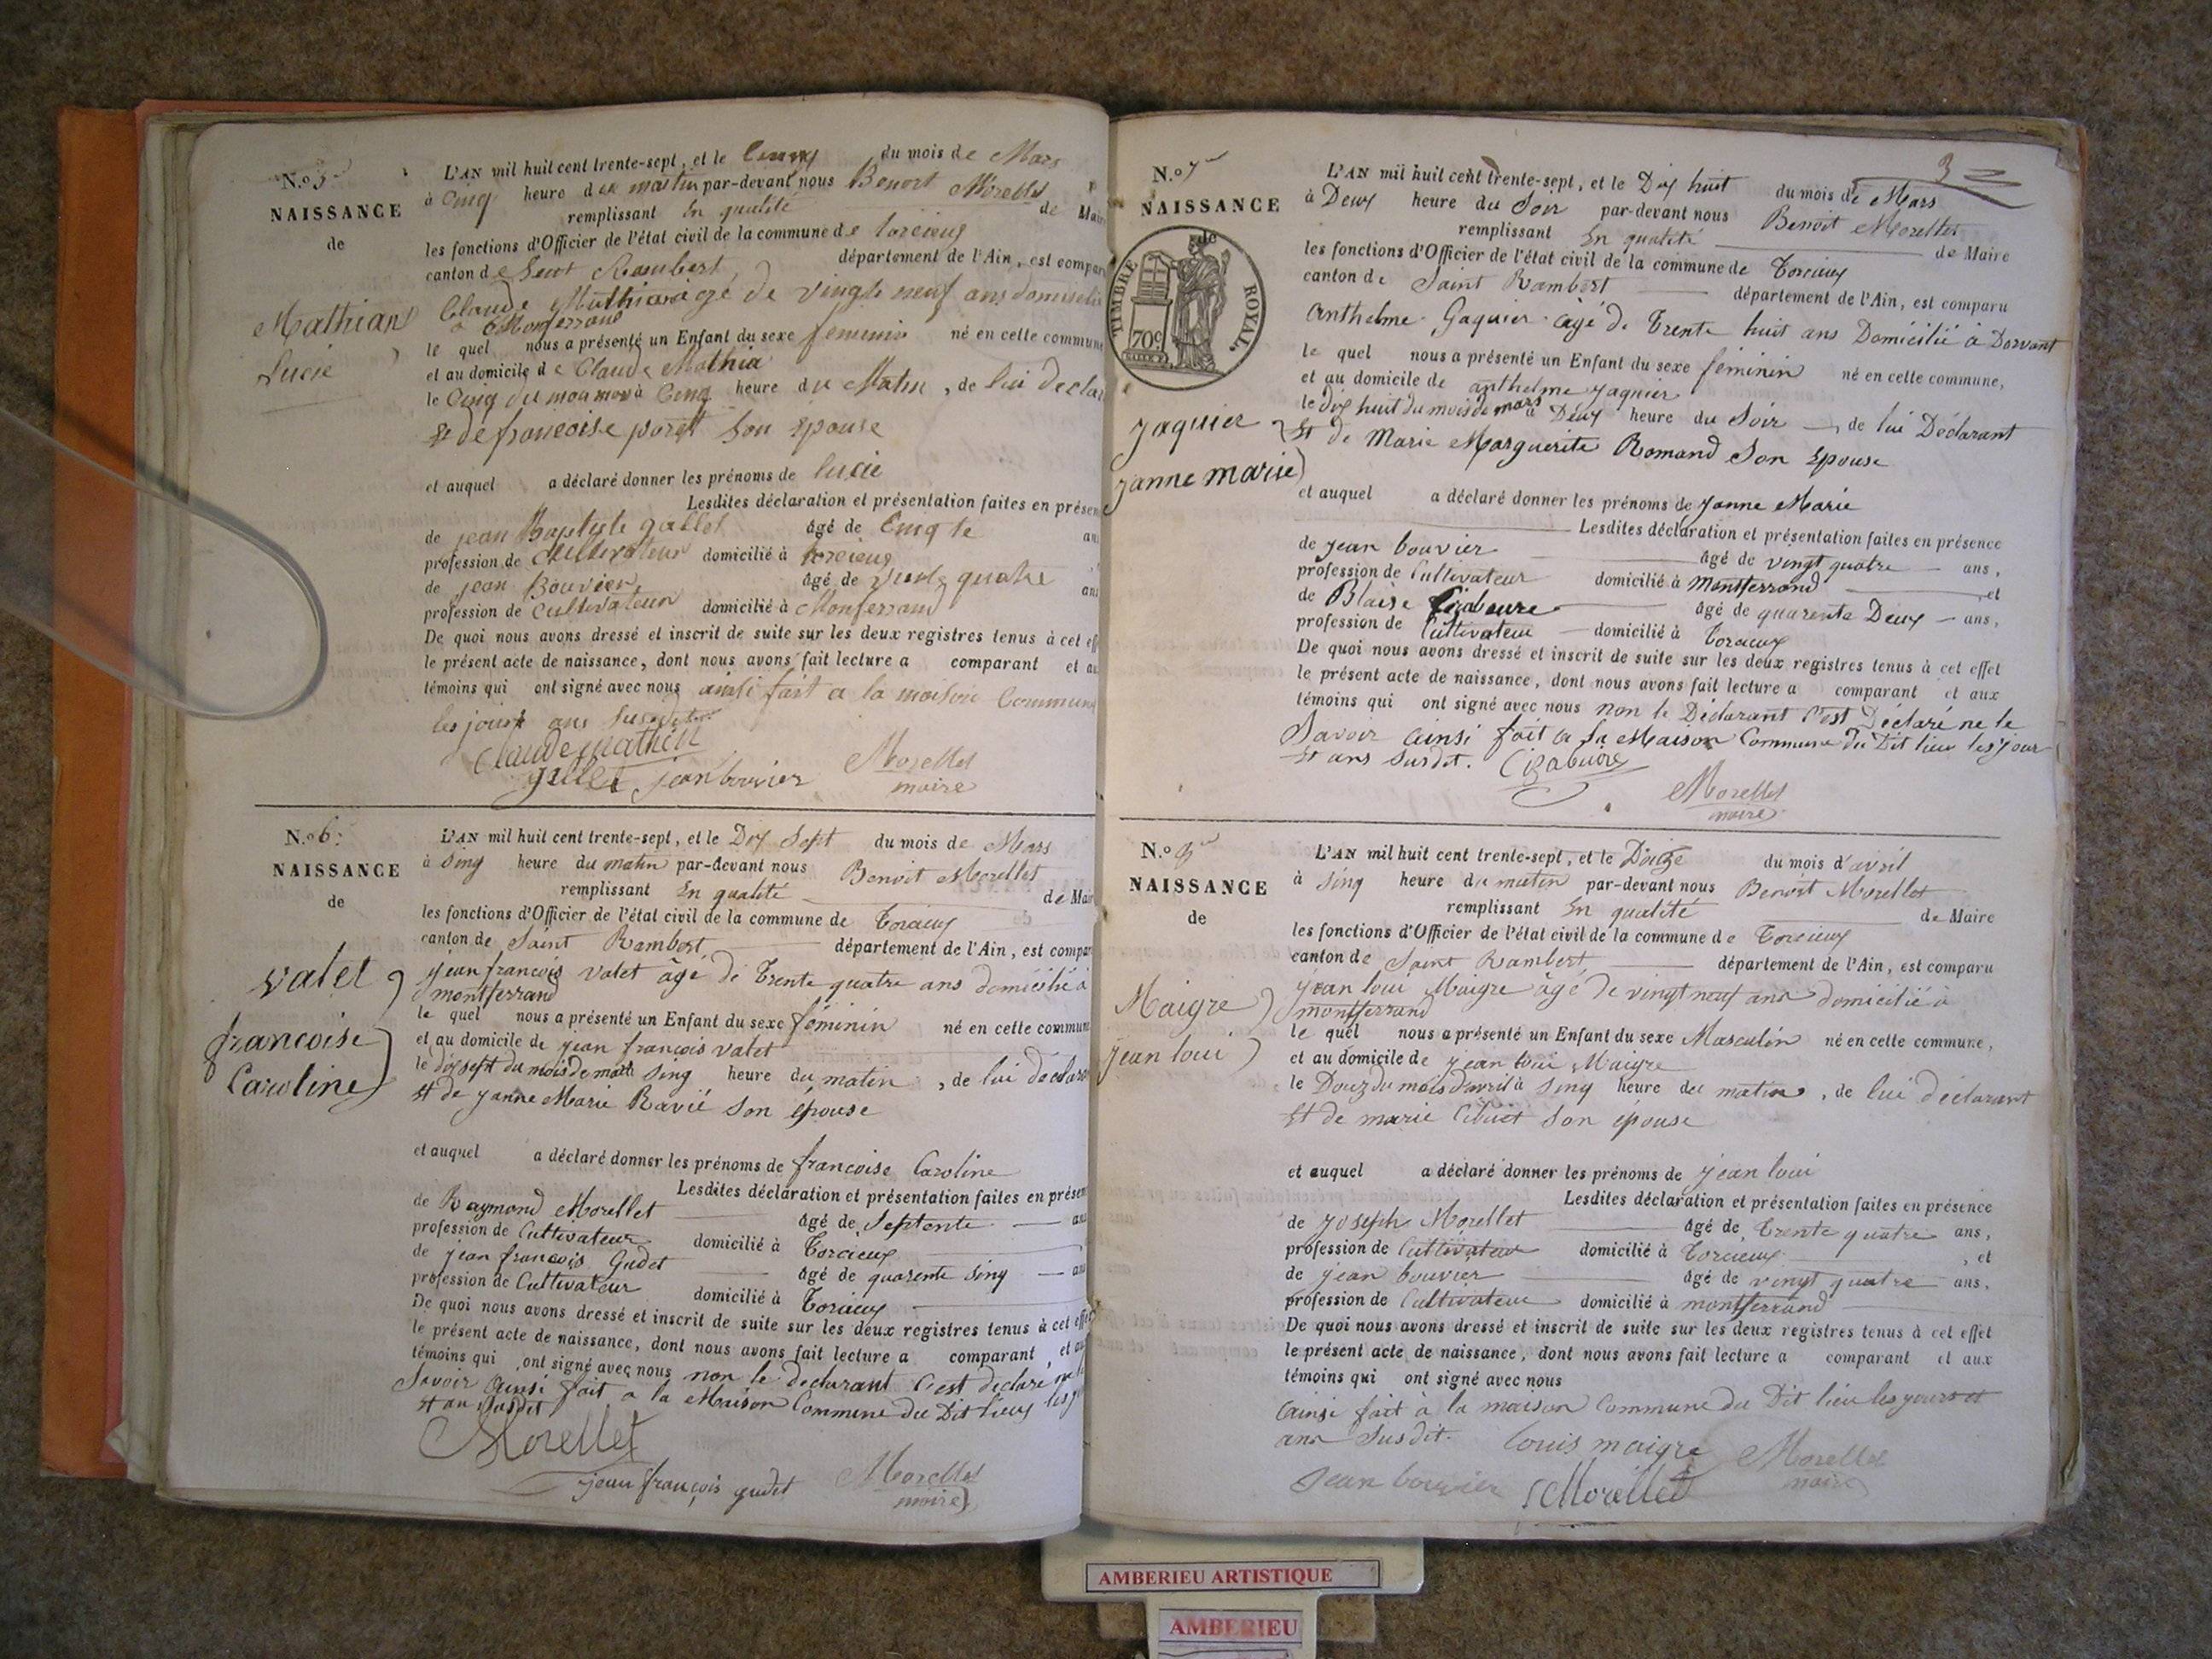 N.º 5
NAISSANCE
de
Mathian
Lucie
L'AN mil huit cent trente-sept, et le Cinq du mois de Mars
à Cinq heure du matin par-devant nous Benoit Morellet
remplissant En qualité de Mair
les fonctions d'Officier de l'état civil de la commune de torcieux
canton de Saint Rambert, département de l'Ain, est compar
Claude Mathian agé de vingt neuf ans domicilié
à Monferrand
le quel nous a présenté un Enfant du sexe feminin né en cette commune
et au domicile de Claude Mathia
le Cinq du mois à Cinq heure du Matin, de lui declar
Et de francoise son Epouse
et auquel a déclaré donner les prénoms de lucie
Lesdites déclaration et présentation faites en présen
de jean Baptiste gallet âgé de an
profession de Cultivateur domicilié à torcieux
de jean Bouvier âgé de vingt quatre an
profession de Cultivateur domicilié à Monferrand
De quoi nous avons dressé et inscrit de suite sur les deux registres tenus à cet eff
le présent acte de naissance, dont nous avons fait lecture a comparant et au
témoins qui ont signé avec nous ainsi fait a la maison Commune
les jour ans Susdit
Claude mathian
gallet jean bouvier Morellet
maire
N.º 6
NAISSANCE
de
valet
francoise
Caroline
L'AN mil huit cent trente-sept, et le Dix Sept du mois de Mars
à Sinq heure du matin par-devant nous Benoit Morellet
remplissant En qualité de Mair
les fonctions d'Officier de l'état civil de la commune de Torcieux
canton de Saint Rambert, département de l'Ain, est compar
jean francois valet âgé de Trente quatre ans domicilié à
montferrand
le quel nous a présenté un Enfant du sexe féminin né en cette commune
et au domicile de jean françois valet
le dix sept du mois de mars Sinq heure du matin, de lui déclaran
Et de janne Marie Ravié Son épouse
et auquel a déclaré donner les prénoms de francoise Caroline
Lesdites déclaration et présentation faites en présen
de Raymond Morellet âgé de Septente ans
profession de Cultivateur domicilié à Torcieux
de jean françois Gudet âgé de quarente Sinq an
profession de Cultivateur domicilié à Torcieux
De quoi nous avons dressé et inscrit de suite sur les deux registres tenus à cet effet
le présent acte de naissance, dont nous avons fait lecture a comparant, et au
témoins qui ont signé avec nous non le declarant C'est declaré ne le
Savoir Ainsi fait a la Maison Commune du Dit lieux les j
Et an Susdit
Morellet
jean françois gudet Morellet
maire
3
N.º 7
NAISSANCE
de
TIMBRE ROYAL.
70c
jaquier
janne marie
L'AN mil huit cent trente-sept, et le Dix huit du mois de Mars
à Deux heure du Soir par-devant nous Benoit Morellet
remplissant En qualité de Maire
les fonctions d'Officier de l'état civil de la commune de Torcieux
canton de Saint Rambert département de l'Ain, est comparu
Anthelme Gaquier âgé de Trente huit ans Domicilié à Dorvant
le quel nous a présenté un Enfant du sexe féminin né en cette commune,
et au domicile de anthelme jaquier
le dix huit du mois de mars à Deux heure du Soir, de lui Déclarant
Et de Marie Marguerite Romand Son Epouse
et auquel a déclaré donner les prénoms de Janne Marie
Lesdites déclaration et présentation faites en présence
de jean bouvier âgé de vingt quatre ans,
profession de Cultivateur domicilié à Montferrand et
de Blaise Cizabuire âgé de quarente Deux ans,
profession de Cultivateur domicilié à Torcieux
De quoi nous avons dressé et inscrit de suite sur les deux registres tenus à cet effet
le présent acte de naissance, dont nous avons fait lecture a comparant et aux
témoins qui ont signé avec nous non le Déclarant C'est Déclaré ne le
Savoir Ainsi fait a la Maison Commune du Dit lieu les jour
Et ans Susdit. Cizabuire
Morellet
maire
N.º
NAISSANCE
de
Maigre
jean loui
L'AN mil huit cent trente-sept, et le Douze du mois d'avril
à Sinq heure du matin par-devant nous Benoit Morellet
remplissant En qualité de Maire
les fonctions d'Officier de l'état civil de la commune de Torcieux
canton de Saint Rambert, département de l'Ain, est comparu
jean loui Maigre âgé de vingt neuf ans domicilié à
montferrand
le quel nous a présenté un Enfant du sexe Masculin né en cette commune,
et au domicile de jean loui Maigre
le Douz du mois d'avril à Sinq heure du matin, de lui déclarant
Et de marie Cibuet Son épouse
et auquel a déclaré donner les prénoms de jean loui
Lesdites déclaration et présentation faites en présence
de joseph Morellet âgé de Trente quatre ans,
profession de Cultivateur domicilié à Torcieux, et
de jean bouvier âgé de vingt quatre ans,
profession de Cultivateur domicilié à montferrand
De quoi nous avons dressé et inscrit de suite sur les deux registres tenus à cet effet
le présent acte de naissance, dont nous avons fait lecture a comparant et aux
témoins qui ont signé avec nous
Ainsi fait à la maison Commune du Dit lieu les jours et
ans Susdit. louis maigre Morellet
maire
jean bouvier Morellet
AMBERIEU ARTISTIQUE
AMBERIEU